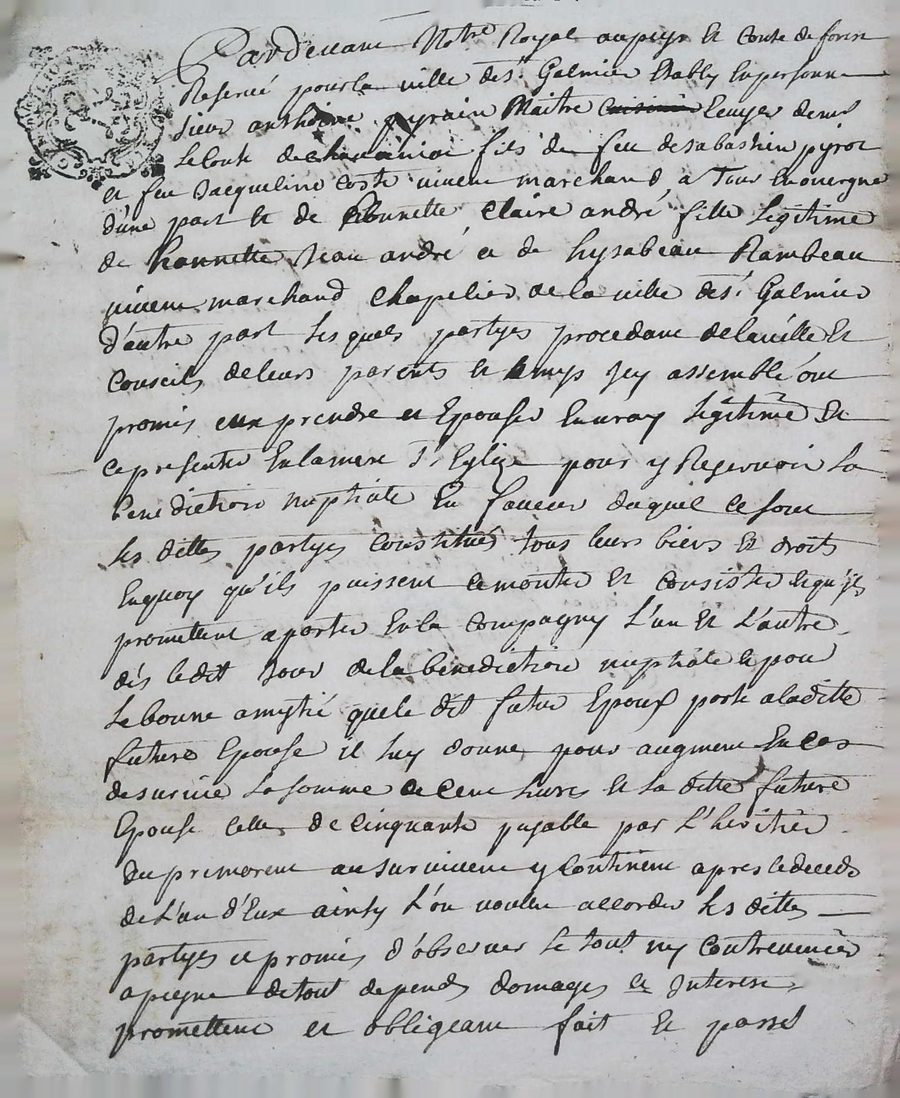 Pardevant Notre Royal au pays et Conté de forest
Reservé pour la ville de St Galmier Estably En personne
sieur anthoine pyrain Maitre Cuisinie Ecuyer de mr
Le Conte de fils de feu de sabastien pyrot
et feu Jacqueline Coste vivent marchand à En ouvergne
d'une part et de Claire andré fille Legitime
de Jean andré et de hysabeau Rambeau
vivent marchand Chapelier de la ville de St Galmier
d'autre part Lesquels partyes procedant de Et
Conseils de leurs parents et amys Jcy assemblé ont
promis eux prendre et Epouser En vray Légitime Et
ce presenter En la mere Ste Eglize pour y Resevoir La
benediction nuptiale En faveur duquel ce sont
Les dittes partyes Constitué tous leurs biens Et droits
En quoy qu'ils puissent ce monter Et Consister
promettent aporter En la Compagny L'un Et L'autre
dès le dit Jour de la bénédiction nuptiale Et pour
Le bonne amytié que le dit futur Epoux porte a la ditte
future Epouse il luy donne pour augment En cas
de survie La somme de cent Livres Et La ditte future
Epouse celle de Cinquante payable par L'héritier
du premorent au survivent y Continent apres le déceds
de L'un d'Eux ainsy L'on voulu accorder Les dittes
partyes et promis d'observer Le tout ny Contrevenir
a peyne de tout depends domages et Interest
promettent et obligeant fait Et passé